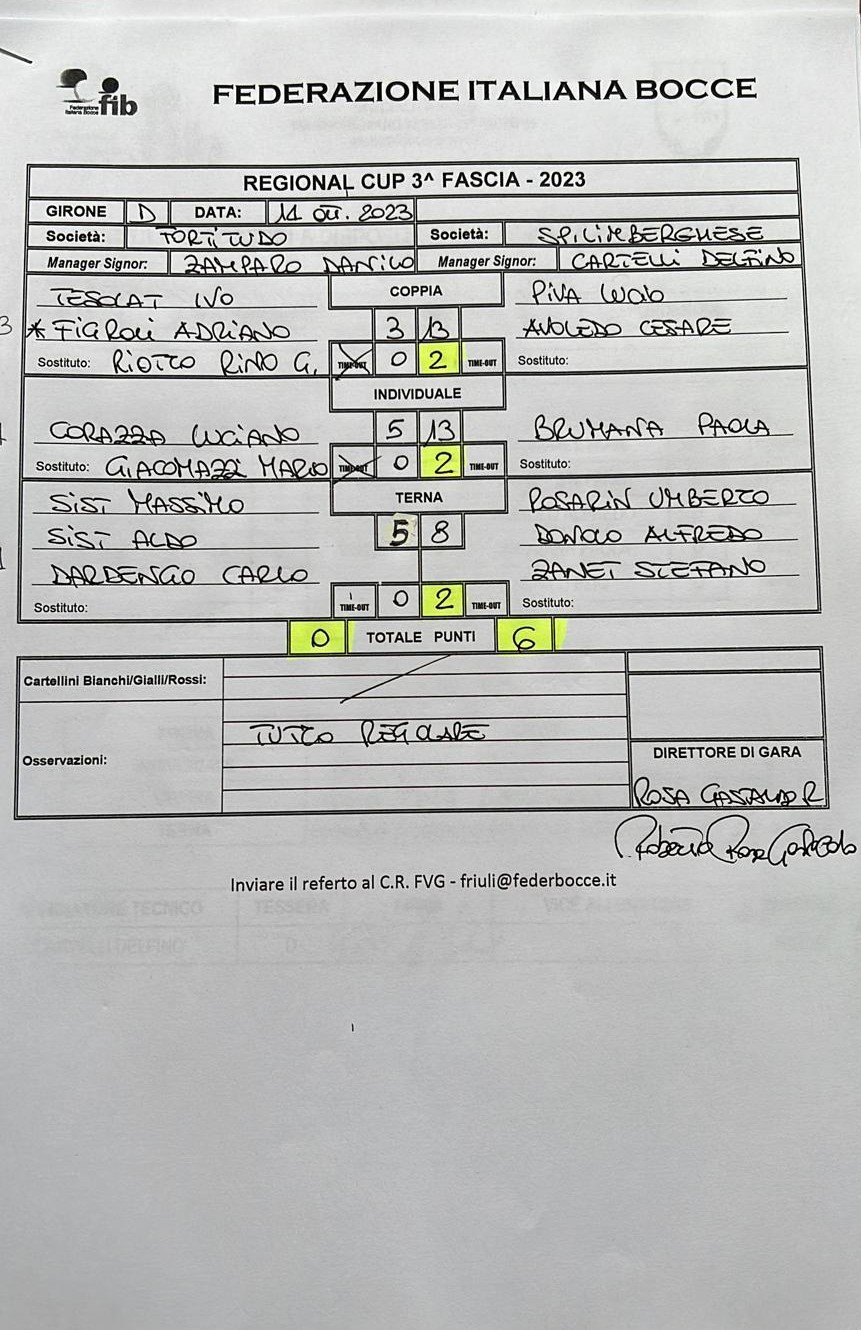 Federazione Italiana Bocce fib
FEDERAZIONE ITALIANA BOCCE
REGIONAL CUP 3^ FASCIA - 2023
GIRONE D DATA: 11 OTT. 2023
Società: FORTITUDO Società: SPILIMBERGHESE
Manager Signor: ZAMPARO DANILO Manager Signor: CARTELLI DELFINO
TESOLAT IVO COPPIA PIVA
* ADRIANO 3 13 AVOLEDO CESARE
Sostituto: RIOTTO RINO G. TIME-OUT 0 2 TIME-OUT Sostituto:
INDIVIDUALE
CORAZZA LUCIANO 5 13 BRUMANA PAOLA
Sostituto: GIACOMAZZI MARIO TIME-OUT 0 2 TIME-OUT Sostituto:
SIST MASSIMO TERNA ROSARIN UMBERTO
SIST ALDO 5 8 DONOLO ALFREDO
DARDENGO CARLO ZANET STEFANO
Sostituto: TIME-OUT 0 2 TIME-OUT Sostituto:
0 TOTALE PUNTI 6
Cartellini Bianchi/Gialli/Rossi:
TUTTO REGOLARE
Osservazioni:
DIRETTORE DI GARA
ROSA GASTALDO R
Inviare il referto al C.R. FVG - friuli@federbocce.it